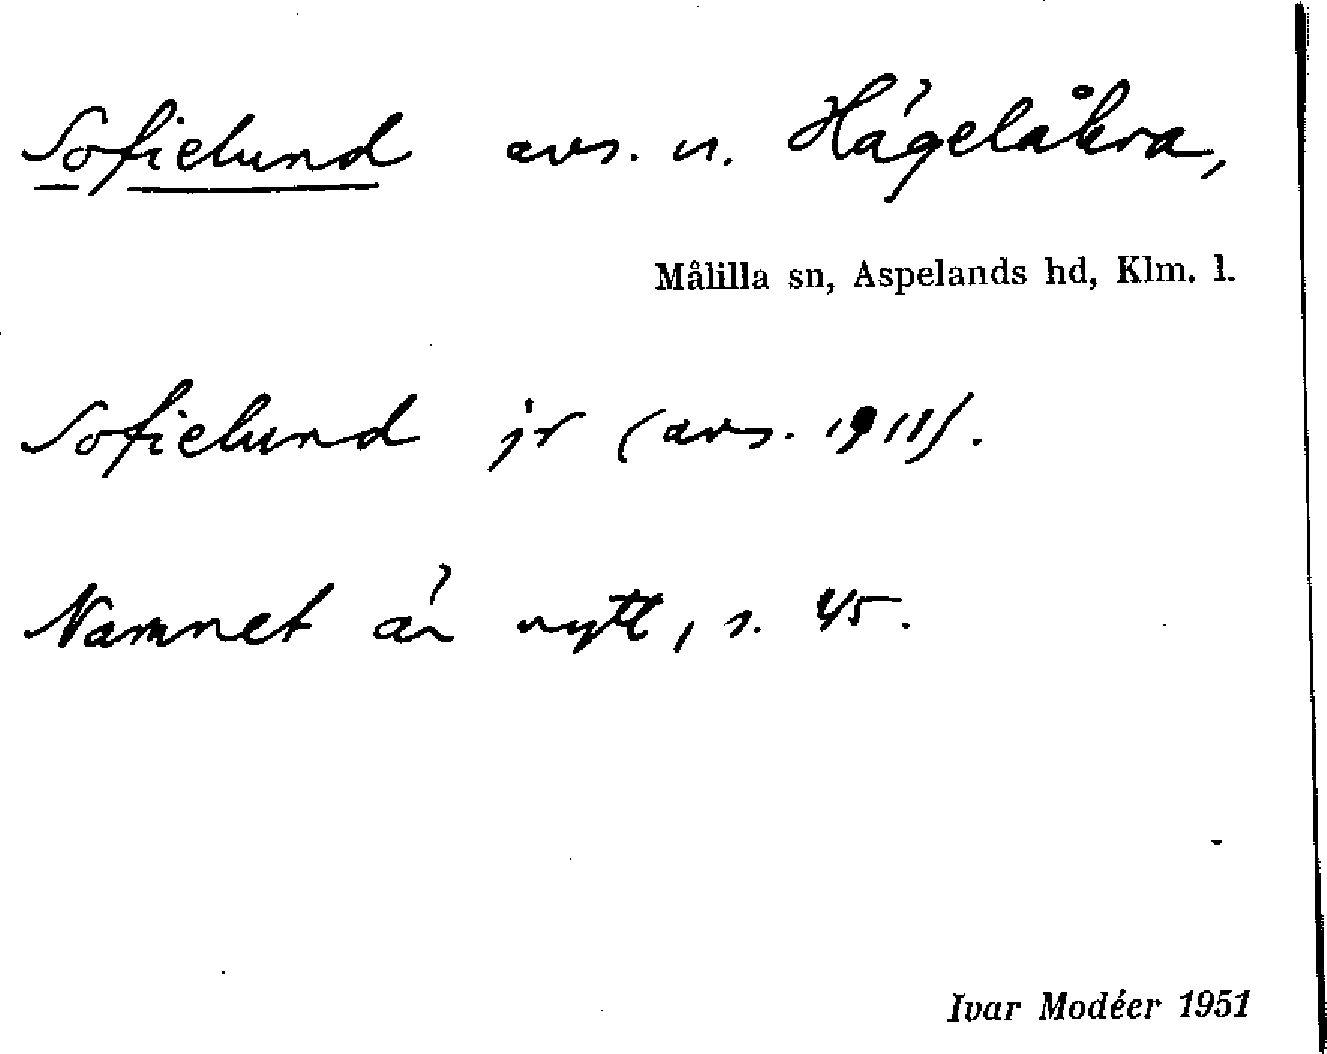 Sofielund avs. u. Hägelåkra,
Målilla sn, Aspelands hd, Klm. l.
Sofielund jr (avs. 1911).
Namnet är nytt, s. 45.
Ivar Modéer 1951